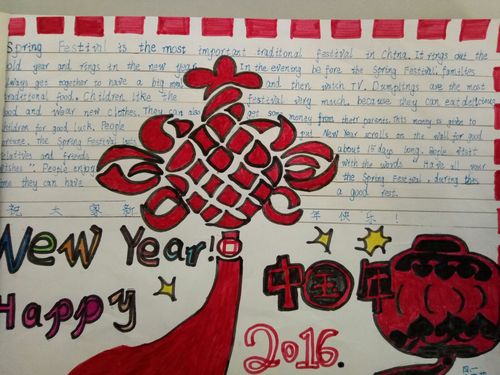 Spring Festival is the most important traditional festival in China. It rings out the
old year and rings in the new year. In the evening before the Spring Festival, families
always get together to have a big meal and then watch TV. Dumplings are the most
traditional food. Children like the festival very much, because they can eat delicious
food and wear new clothes. They can also get some money from their parents. This money is given to
children for good luck. People put New Year scrolls on the wall for good
fortune. The Spring Festival lasts about 15 days long. People visit
relatives and friends with the words "Have all your
wishes". People enjoy the Spring Festival, during this
time they can have a good rest.
祝 大 家 新 年 快 乐 !
New Year!
Happy
中国年
2016.